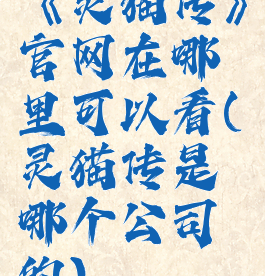 《灵猫传》
官网在哪
里可以看(
灵猫传是
哪个公司
的)